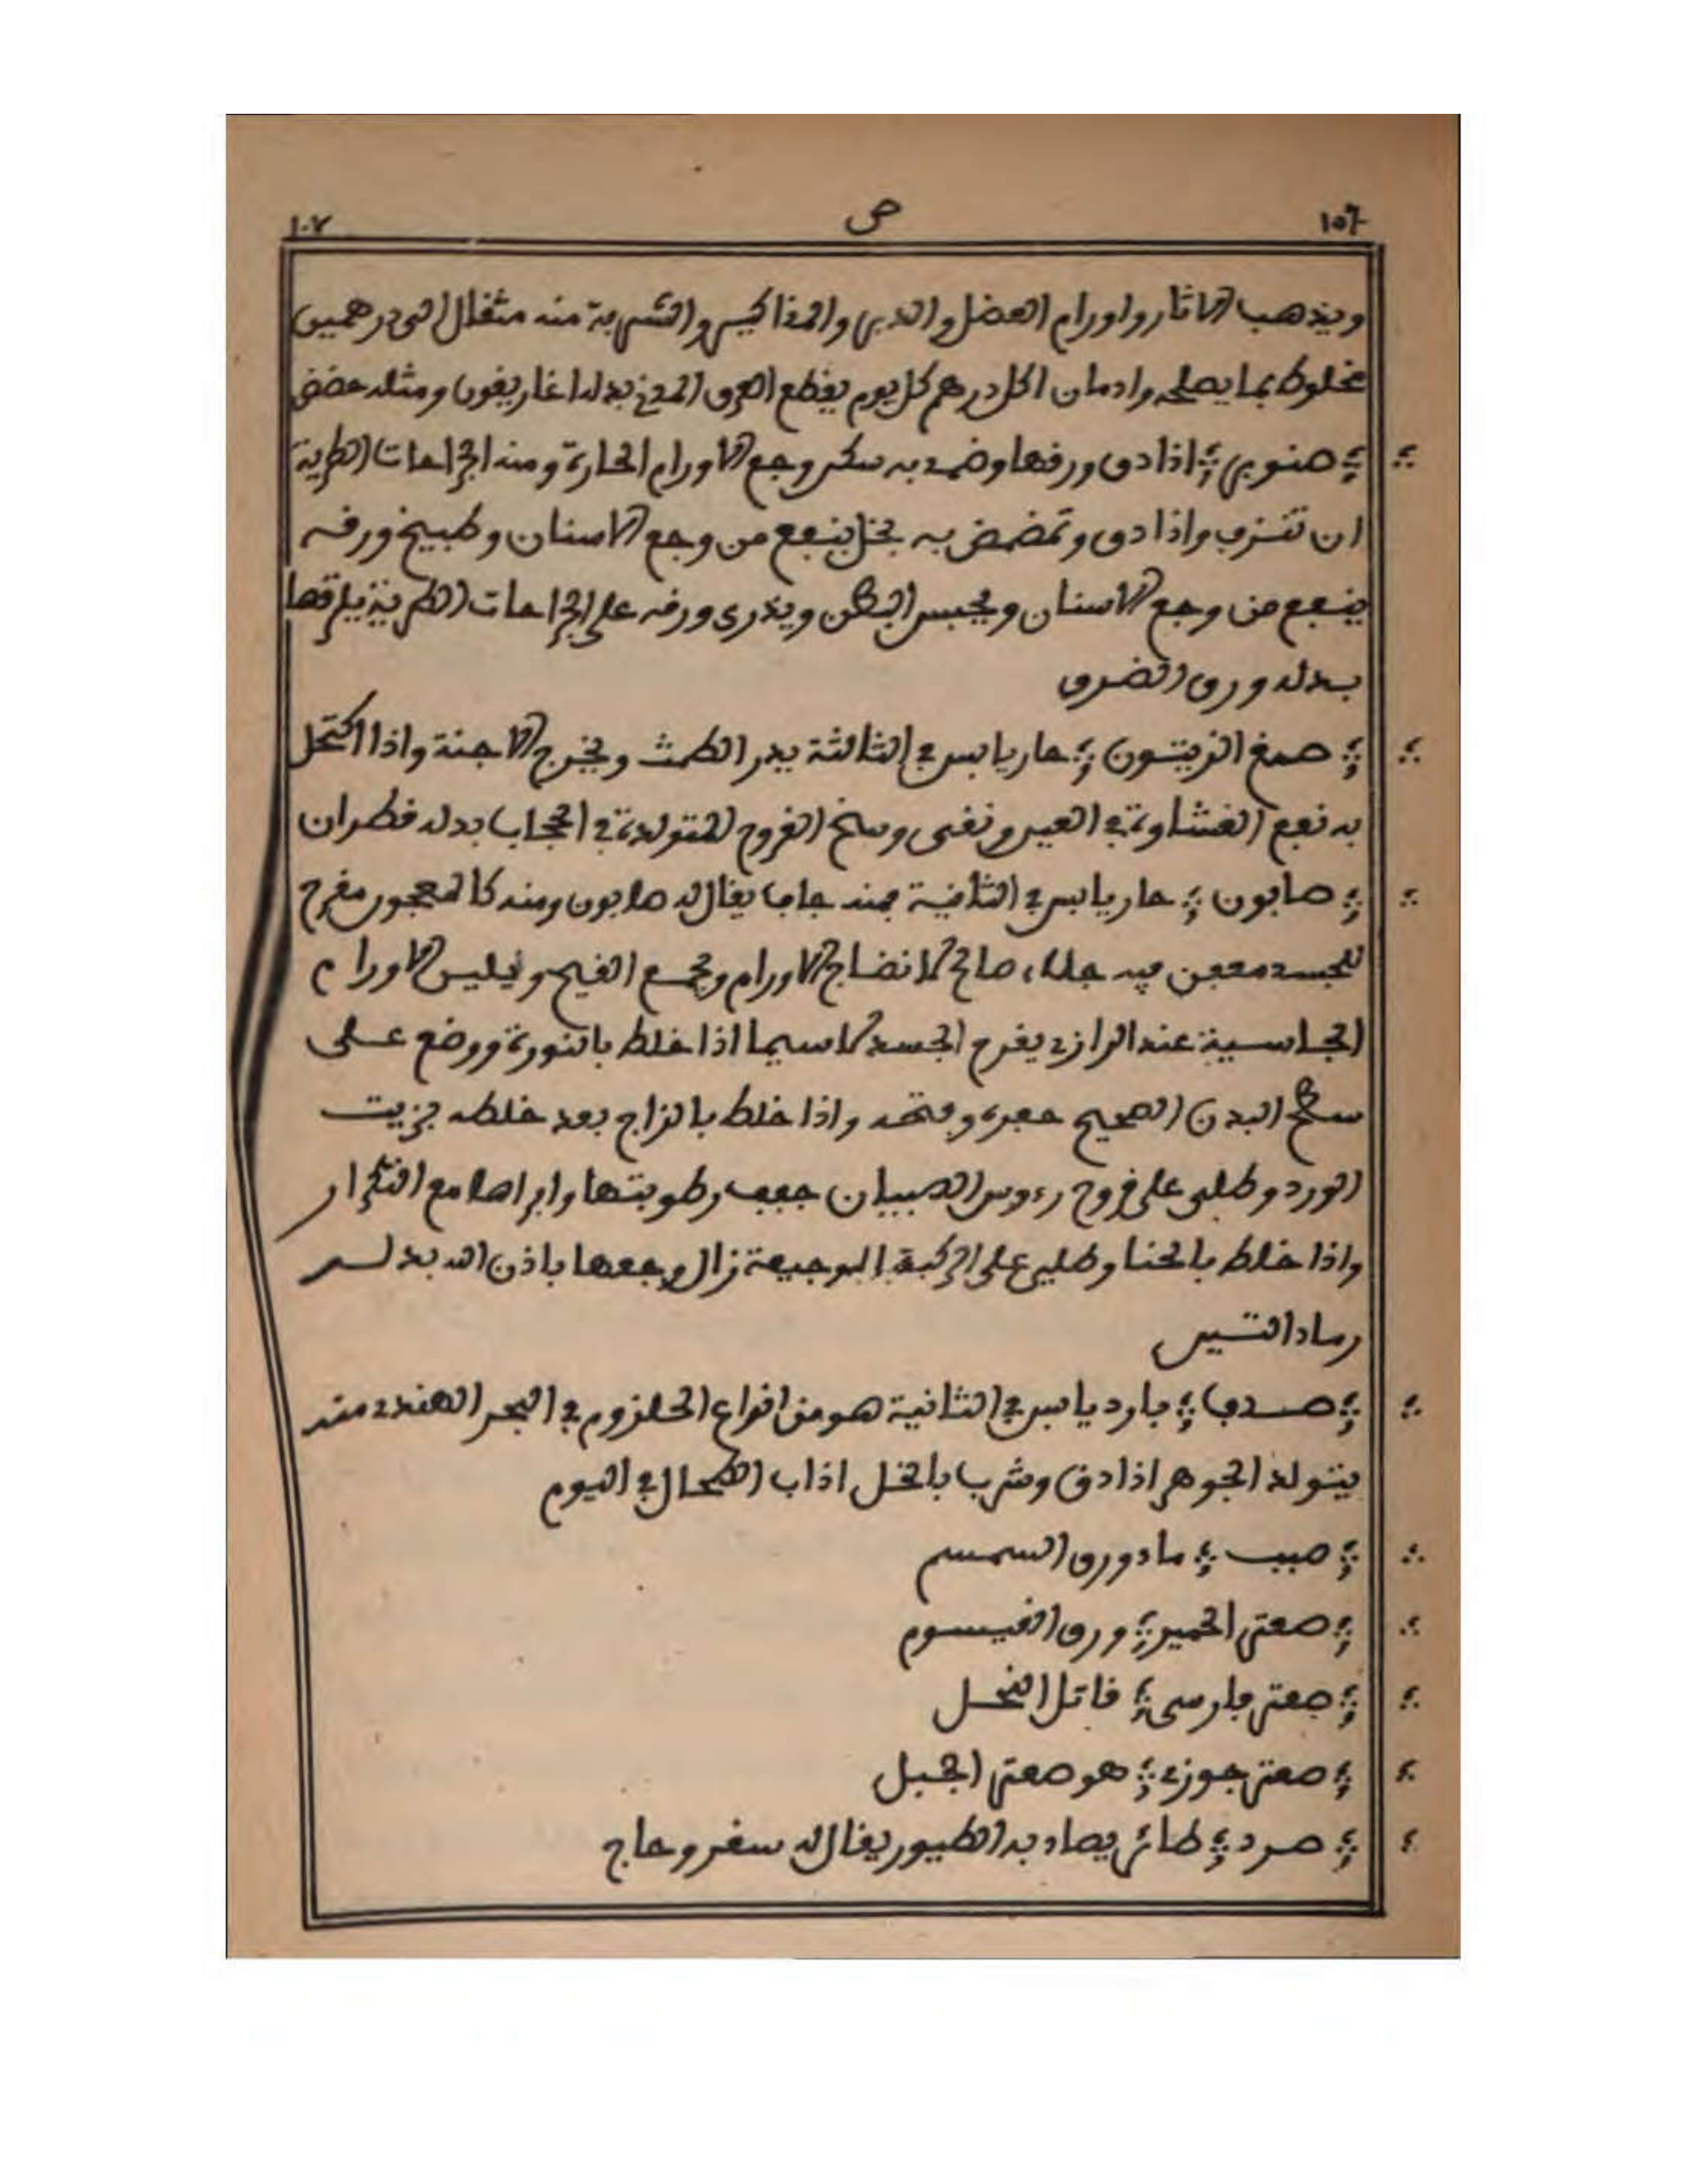 ١٥٦ ص ١٠٧
ويذهب الاثار واورام العضل والدبر والمذاكير والشربة منه مثقال الى درهمين
مخلوط بما يصلحه وادمان اكل درهم كل يوم يقطع العرق بدله اغاريقون ومثله حضض
صنوبر اذا دق ورقها وضمد به سكن وجع الاورام الحارة ومنه الجراحات الطرية
ان تنزف واذا دق وتمضمض به بخل ينفع من وجع الاسنان وطبيخ ورقه
ينفع من وجع الاسنان ويحبس البطن ويذرى ورقه على الجراحات الطرية يلزقها
بدله ورق الضرو
صمغ الزيتون حار يابس في الثالثة يدر الطمث ويخرج الاجنة واذا اكتحل
به نفع الغشاوة في العين ونقى وسخ القروح المتولدة في الحجاب بدله قطران
صابون حار يابس في الثانية منه جاف يقال له صابون ومنه كالمعجون مقرح
للجسد معفن فيه جلاء صالح لانضاج الاورام وتجمع القيح ويلين الاورام
الجاسية عند الرازي يقرح الجسد لاسيما اذا خلط بالنورة ووضع على
سطح البدن الصحيح حفره وفتحه واذا خلط بالزاج بعد خلطه بزيت
الورد وطلي على قروح رءوس الصبيان جفف رطوبتها وابراها مع التكرار
واذا خلط بالحنا وطلي على الركبة الوجيعة زال وجعها باذن الله بدله
رماد التين
صدف بارد يابس في الثانية هو من انواع الحلزوم في البحر الهندي منه
يتولد الجوهر اذا دق وشرب بالخل اذاب الطحال في اليوم
صبيب ماء ورق السمسم
صعتر الحمير ورق القيسوم
صعتر فارسي قاتل النحل
صعتر جوزي هو صعتر الجبل
صرد طائر يصاد به الطيور يقال له سفر وحاج